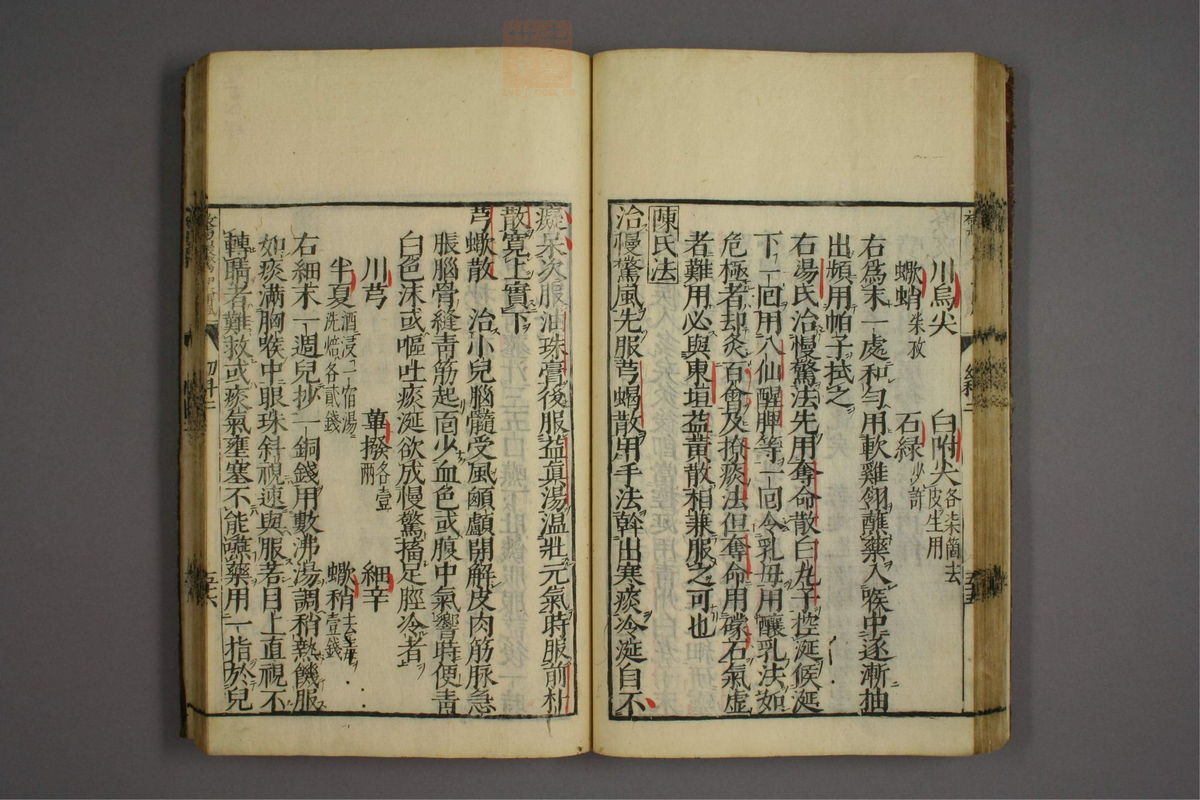 川烏尖 白附尖各柒箇去皮生用
蠍蛸柒孜 石緑少許
右為末一處和勻用軟雞翎蘸藥入喉中逐漸抽
出頻用帕子拭之
右湯氏治慢驚法先用奪命散白丸子控涎候涎
下一回用八仙醒脾等一回令乳母用釀乳法如
危極者却灸百會及撩痰法但奪命用礞石氣虚
者難用必與東垣益黃散相兼服之可也
陳氏法
治慢驚風先服芎蝎散用手法幹出寒痰冷涎自不
癡呆次服油珠膏後服益真湯温壯元氣時服前朴
散寛上實下
芎蠍散 治小兒腦髓受風顖顱開解皮肉筋脉急
脹腦骨縫青筋起面少血色或腹中氣響時便青
白色沫或嘔吐痰涎欲成慢驚搐足脛冷者
川芎 蓽撥各壹兩 細辛
半夏酒浸一宿湯洗焙各貳錢 蠍稍去毒壹錢
右細末一週兒抄一銅錢用數沸湯調稍熱饑服
如痰満胸喉中眼珠斜視速與服若目上直視不
轉睛者難救或痰氣壅塞不能嚥藥用一指於兒